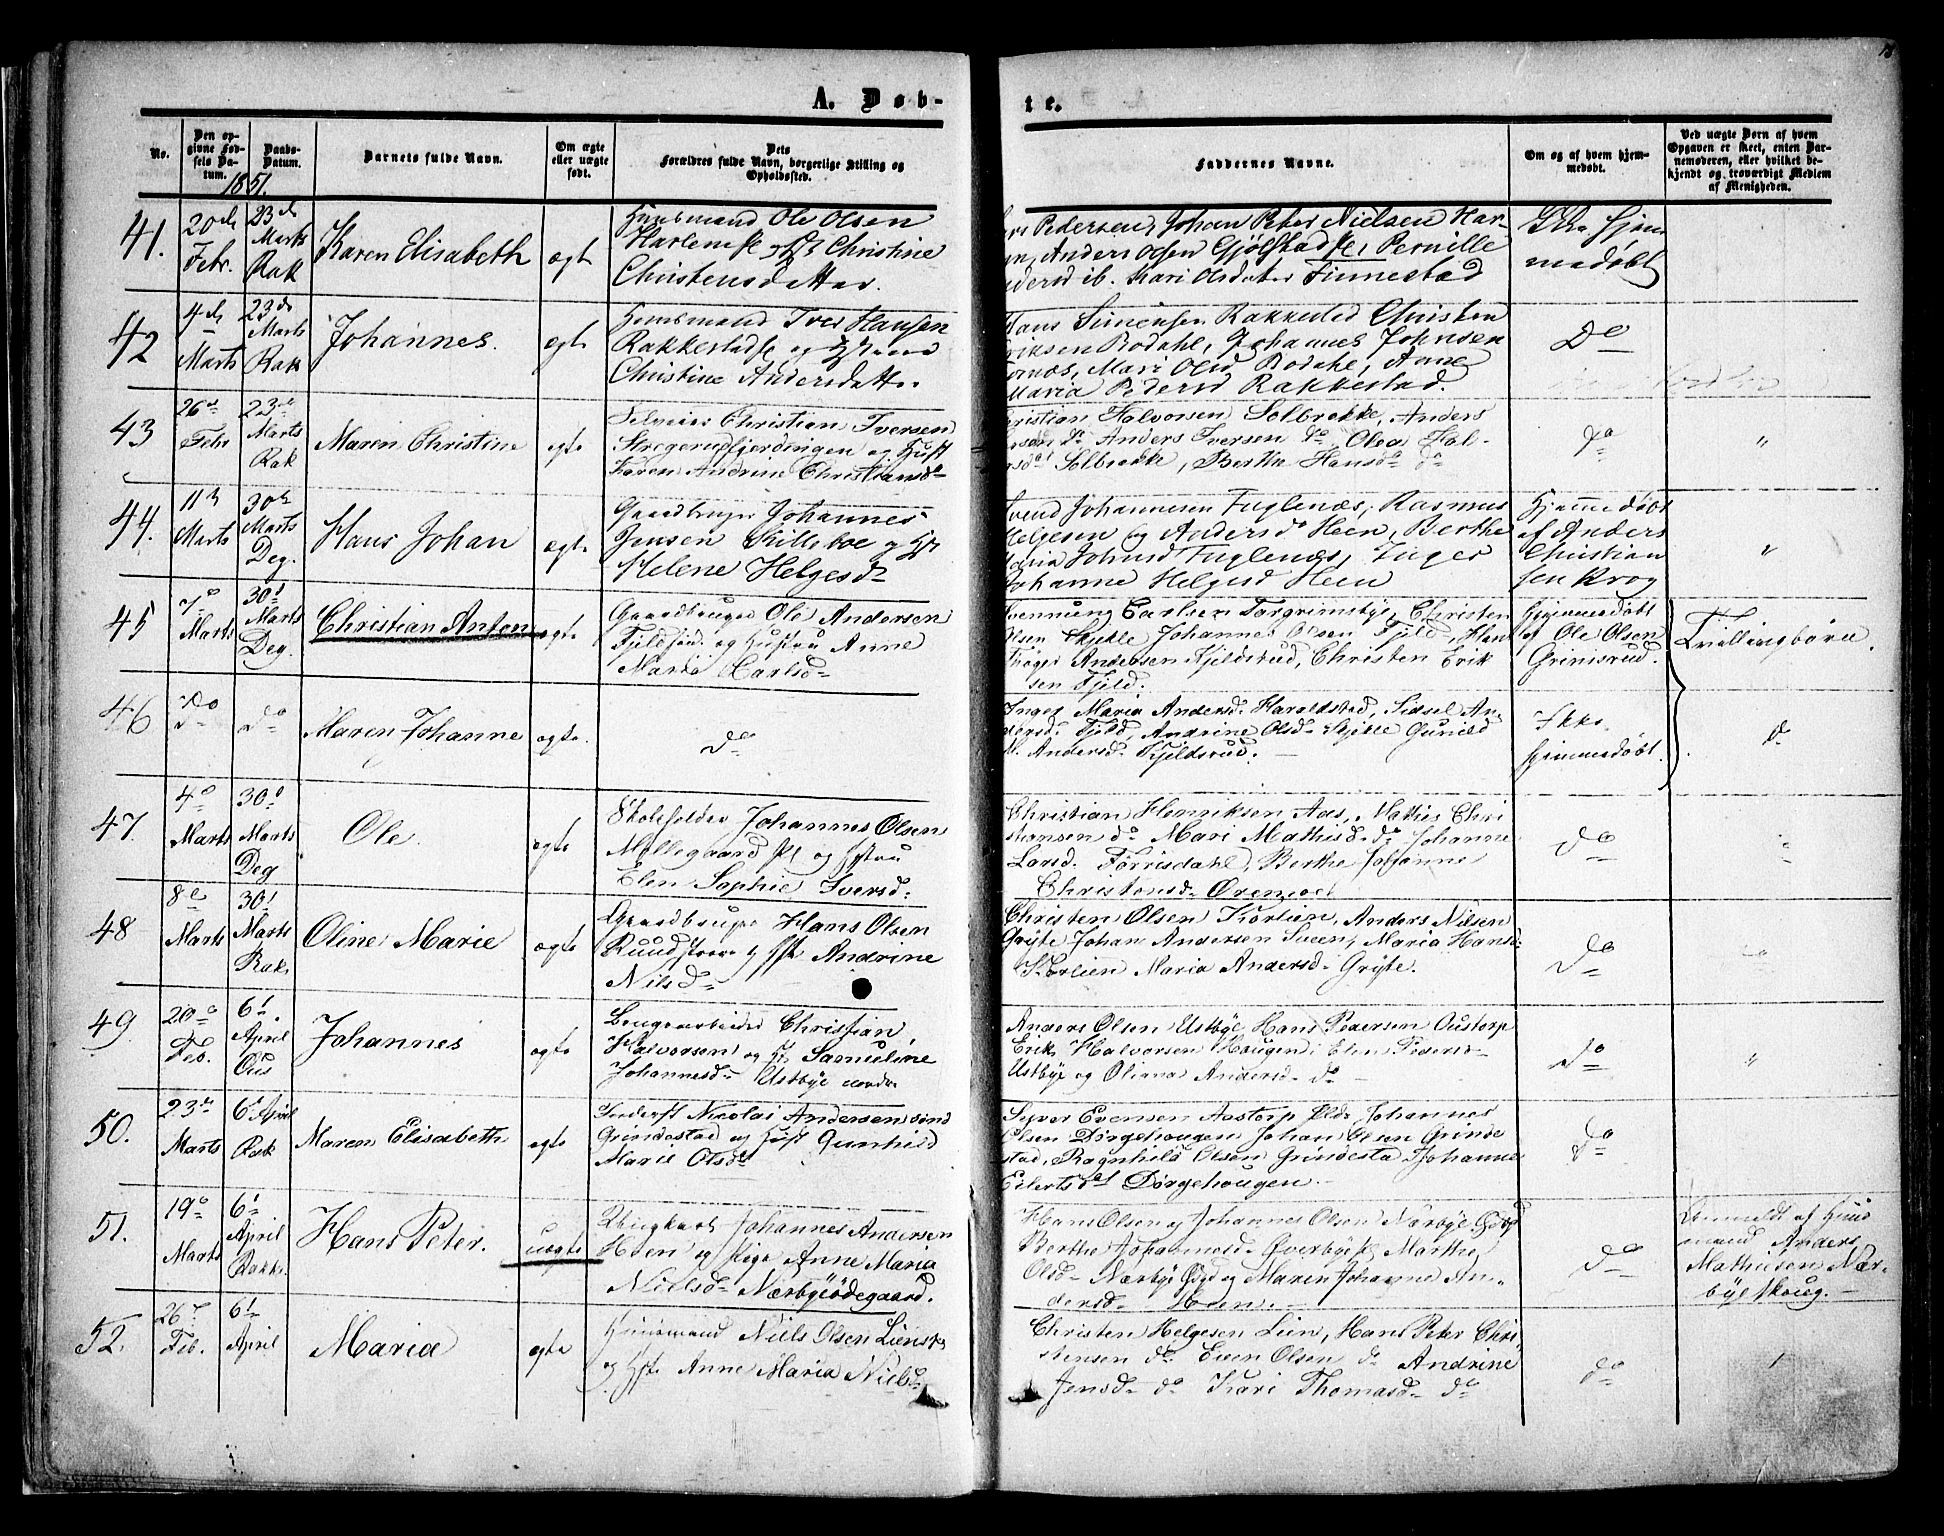 A. Døb-
te.
No.
Den op-
givne Fød-
sels Da-
tum.
Daabs-
Datum.
Barnets fulde Navn.
Om ægte
eller uægte
født.
Dets
Forældres fulde Navn, borgerlige Stilling og
Opholdssted.
Faddernes Navne.
Om og af hvem hjem-
medøbt.
Ved uægte Børn af hvem
Opgaven er skeet, enten Bar-
nemoderen, eller hvilket be-
kjendt og troværdigt Medlem
af Menigheden.
1851.
41.
20de
Febr.
23de
Marts
Rak
Karen Elisabeth
ægte
Huusmand Ole Olsen
Christine
Christensdatter.
Pedersen, Johan Peter Nielsen Har-
Anders Olsen Gjølstad, Pernille
ib. Mari Olsdatter Finnestad
Ikke hjem
medøbt
42
4de
Marts
23de
Marts
Rak
Johannes.
ægte
Huusmand Iver Hansen
Rakkestad og Hustru
Christine Andersdatter
Hans Simensen Rakkestad Christen
Eriksen Bodahl, Johannes Johnsen
Mari Olsd Bodahl, Anne
Maria Pedersd Rakkestad.
Do
43
26de
Febr
23de
Marts
Rak
Maren Christine
ægte
Selveier Christian Iversen
Stregerudfjerdingen og Hust
Karen Andrine Christiansd
Christian Halvorsen Solbrække, Anders
do Anders Iversen do, Olea Hal-
Solbrække, Berthe Hansd do
do
"
44.
11te
Marts
30te
Marts
Deg.
Hans Johan
ægte
Gaardbruger Johannes
Jensen Killeboe og Hst
Helene Helgesd
Svend Johannesen Fuglenæs, Rasmus
Helgesen og Anders do Heen, Berthe
Maria Johnsd Fuglenæs, Inger
Johanne Helgesd Heen
Hjemmedøbt
af Anders
Christian
sen Krog
"
45
7de
Marts
30te
Marts
Deg.
Christian Anton
ægte
Gaardbruger Ole Andersen
og Hustru Anne
Marie Carlsd
Henning Carlsen Torgrimsbye, Christen
Olsen Skjikle Johannes Olsen Fjeld, Han
Andersen Kjeldsrud, Christen Erik
sen Fjeld.
Hjemmedøbt
af Ole Olsen
Grimsrud.
Tvillingbørn
46
do
do
Maren Johanne
ægte.
do
Inger Maria Andersd. Haraldstad, Sidsel An
dersd. Fjeld, Andrine Olsd. Skjikle Gunild
M. Andersd. Kjeldsrud.
Ikke
hjemmedøbt.
do
47.
4de
Marts
30te
Marts
Deg
Ole.
ægte
Skoleholder Johannes Olsen
Møllegaard og Hstru
Elen Sophie Iversd.
Christian Henriksen Aas, Mathis Chri
stiansen do Mari Mathisd. do Johanne
Larsd. Tørrisdahl, Berthe Johanne
Christensd.
do
"
48
8de
Marts
30te
Marts
Rak.
Oline Marie
ægte
Gaardbruger Hans Olsen
Ruud og Hst Andrine
Nilsd
Christen Olsen Kørlien, Anders Nilsen
Grÿte Johan Andersen Sneen, Maria Hansd
Kørlien Maria Andersd. Grÿte.
do
"
49
20de
Feb.
6te
April
Ous
Johannes
ægte
Brugsarbeider Christian
Halvorsen og H. Samueline
Johannesd. Ustbÿe nordre
Anders Olsen Ustbÿe, Hans Pedersen Oustorp
Erik Halvorsen Haugen, Elen Pedersd
Ustbÿe og Oliana Andersd. do
do
"
50.
23de
Marts
6te April
Rak
Maren Elisabeth
ægte
Nicolai Andersen
Grindestad og Hust Gunhild
Marie Olsd
Syver Evensen Aastorp, Johannes
Olsen Dørgehougen Johan Olsen Grinde
stad, Ragnhild Olsen Grindesta Johanne
Eilertsd Dørgehougen.
do
51.
19de
Marts
6te
April
Rakk.
Hans Peter.
uægte
Ungkarl Johannes Andersen
Hoen og Pige Anne Maria
Nielsd Nærbÿeødegaard.
Hans Olsen og Johannes Olsen Nærbÿe
Berthe Johannesd. Overbÿe Marthe
Olsd. Nærbÿe og Maren Johanne An
dersd. Hoen.
do
Anmeldt af Huus
mand Anders
Mathisen Nær-
bÿe Skoug.
52.
26de
Feb.
6te
April
Maria
ægte
Huusmand Niels Olsen
og Hst Anne Maria Nielsd.
Christen Helgesen Lien, Hans Peter Chri
stensen do Even Olsen do Andrine
Jensd. do Kari Thomasd. do
do